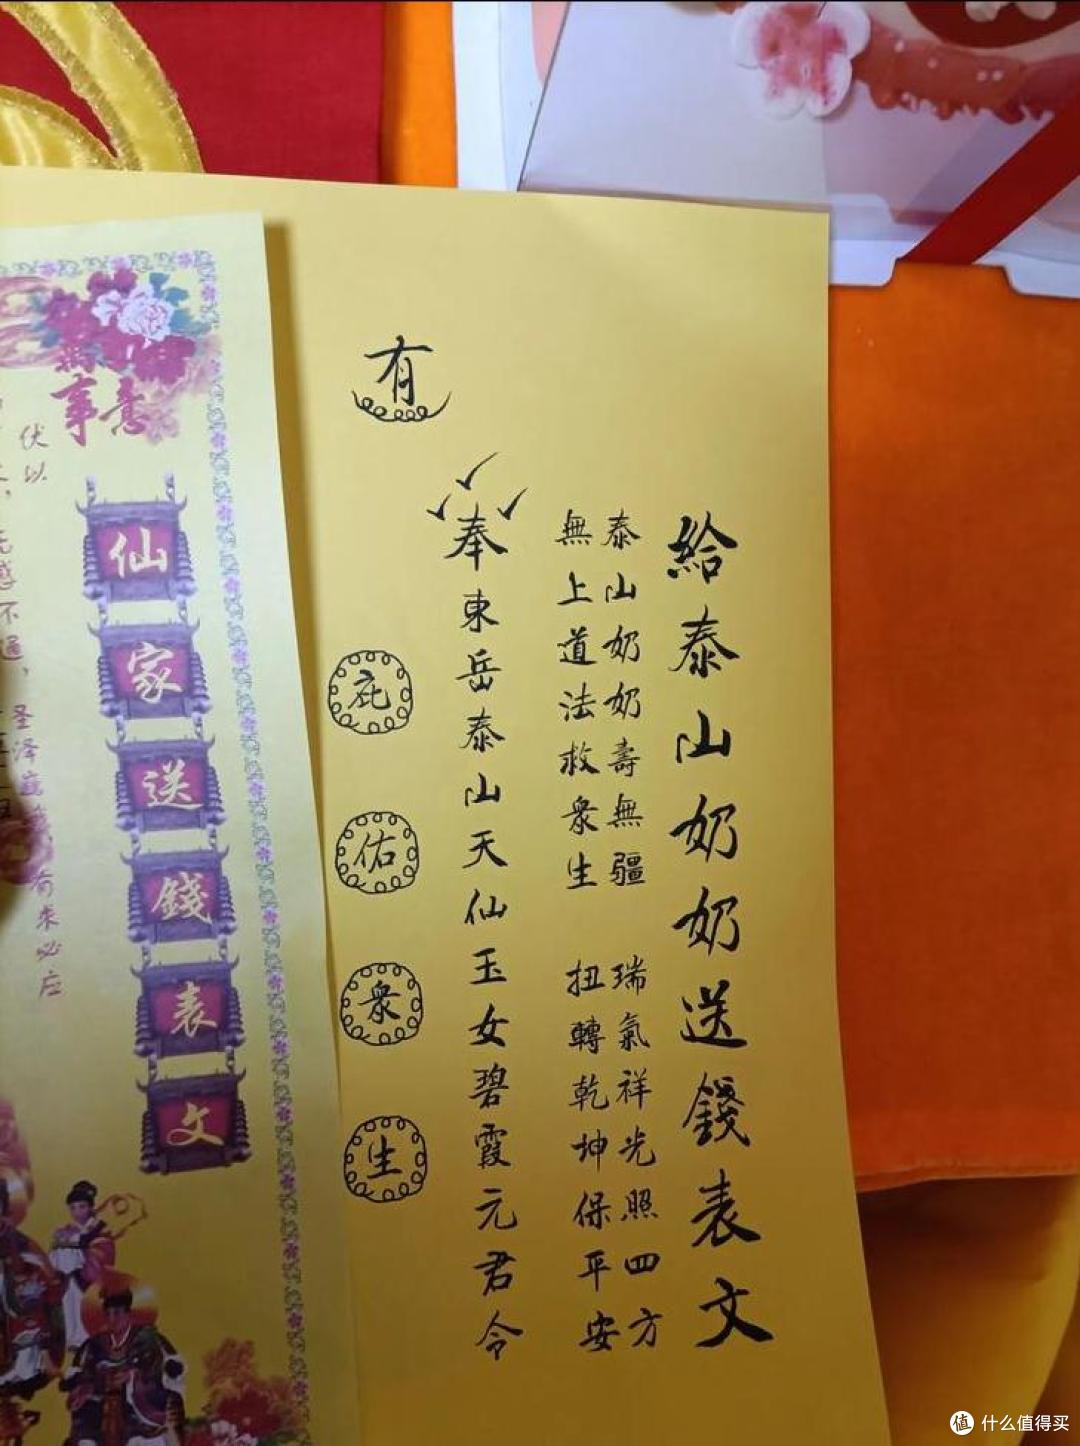 給泰山奶奶送錢表文
泰山奶奶壽無疆 瑞氣祥光照四方
無上道法救衆生 扭轉乾坤保平安
奉東岳泰山天仙玉女碧霞元君令
有
庇佑衆生
事意
仙家送錢表文
伏以
圣泽巍 有求必应
感不通，
值 什么值得买